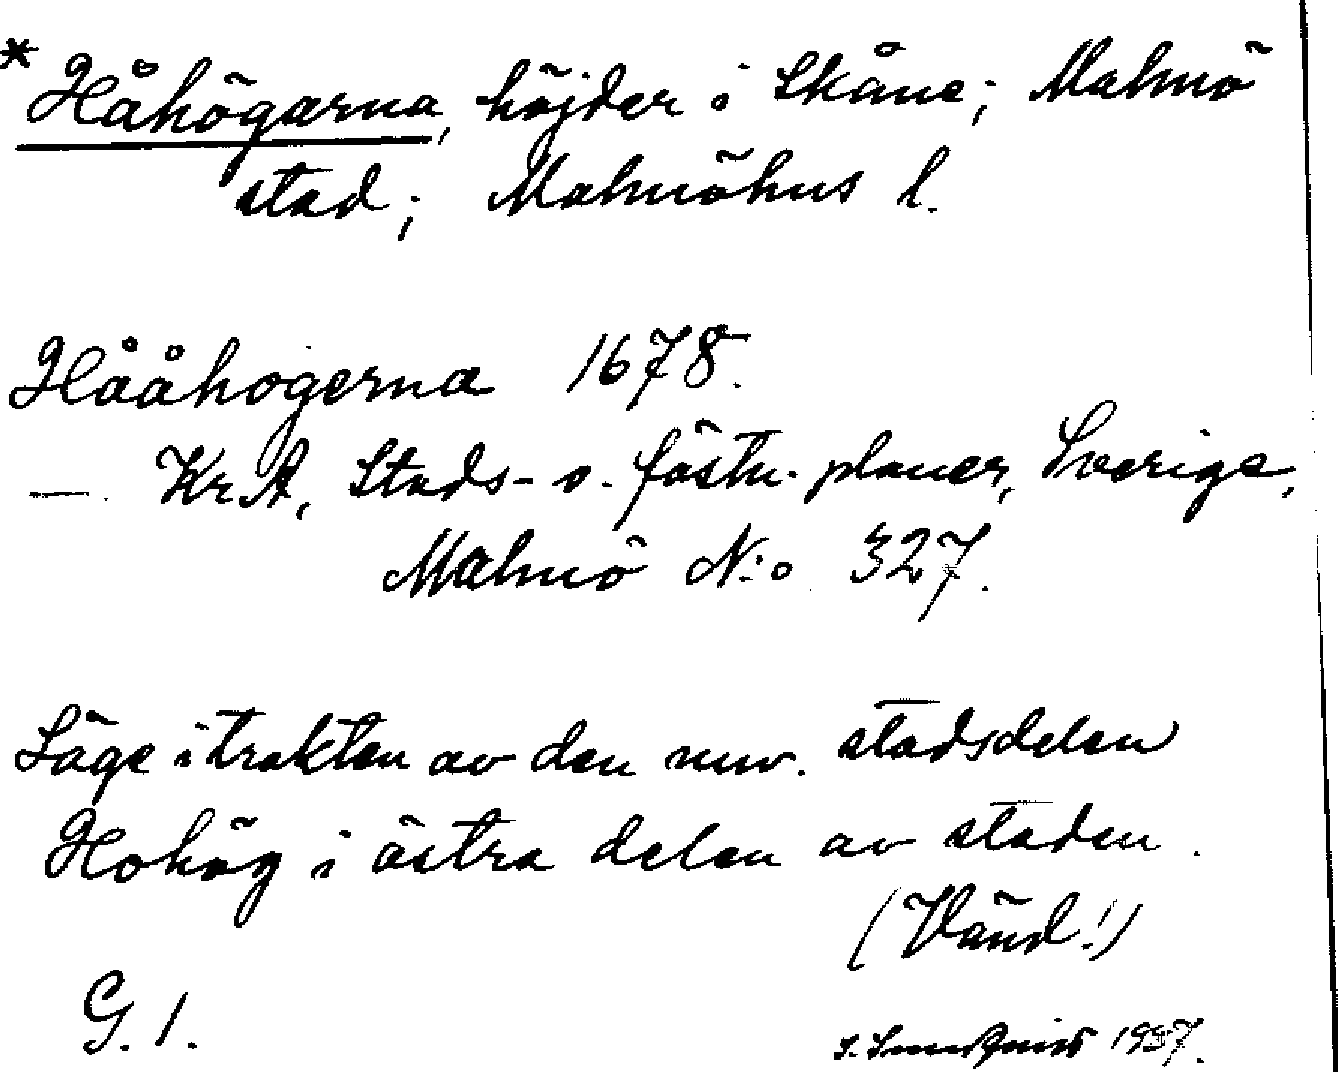 * Håhögarna, höjder i Skåne; Malmö
stad; Malmöhus l.
Hååhogerna 1678.
— Kr.A, Stads- o. fästn. planer, Sverige,
Malmö N:o 327.
Läge i trakten av den nuv. stadsdelen
Hohög i östra delen av staden.
(Vänd!)
G. 1.
1937.